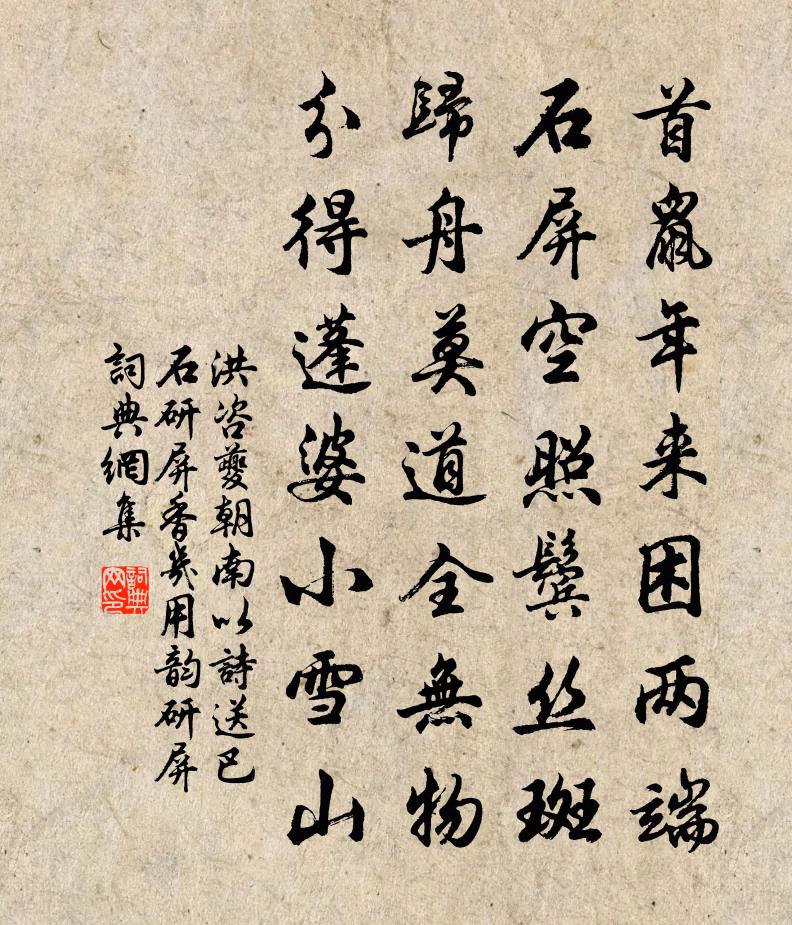 首鼠年来困两端
石屏空照鬓丝斑
歸舟莫道全無物
分得蓬婆小雪山
洪咨夔朝南以詩送巴
石研屏香几用韵研屏
詞典網集
詞典
网印